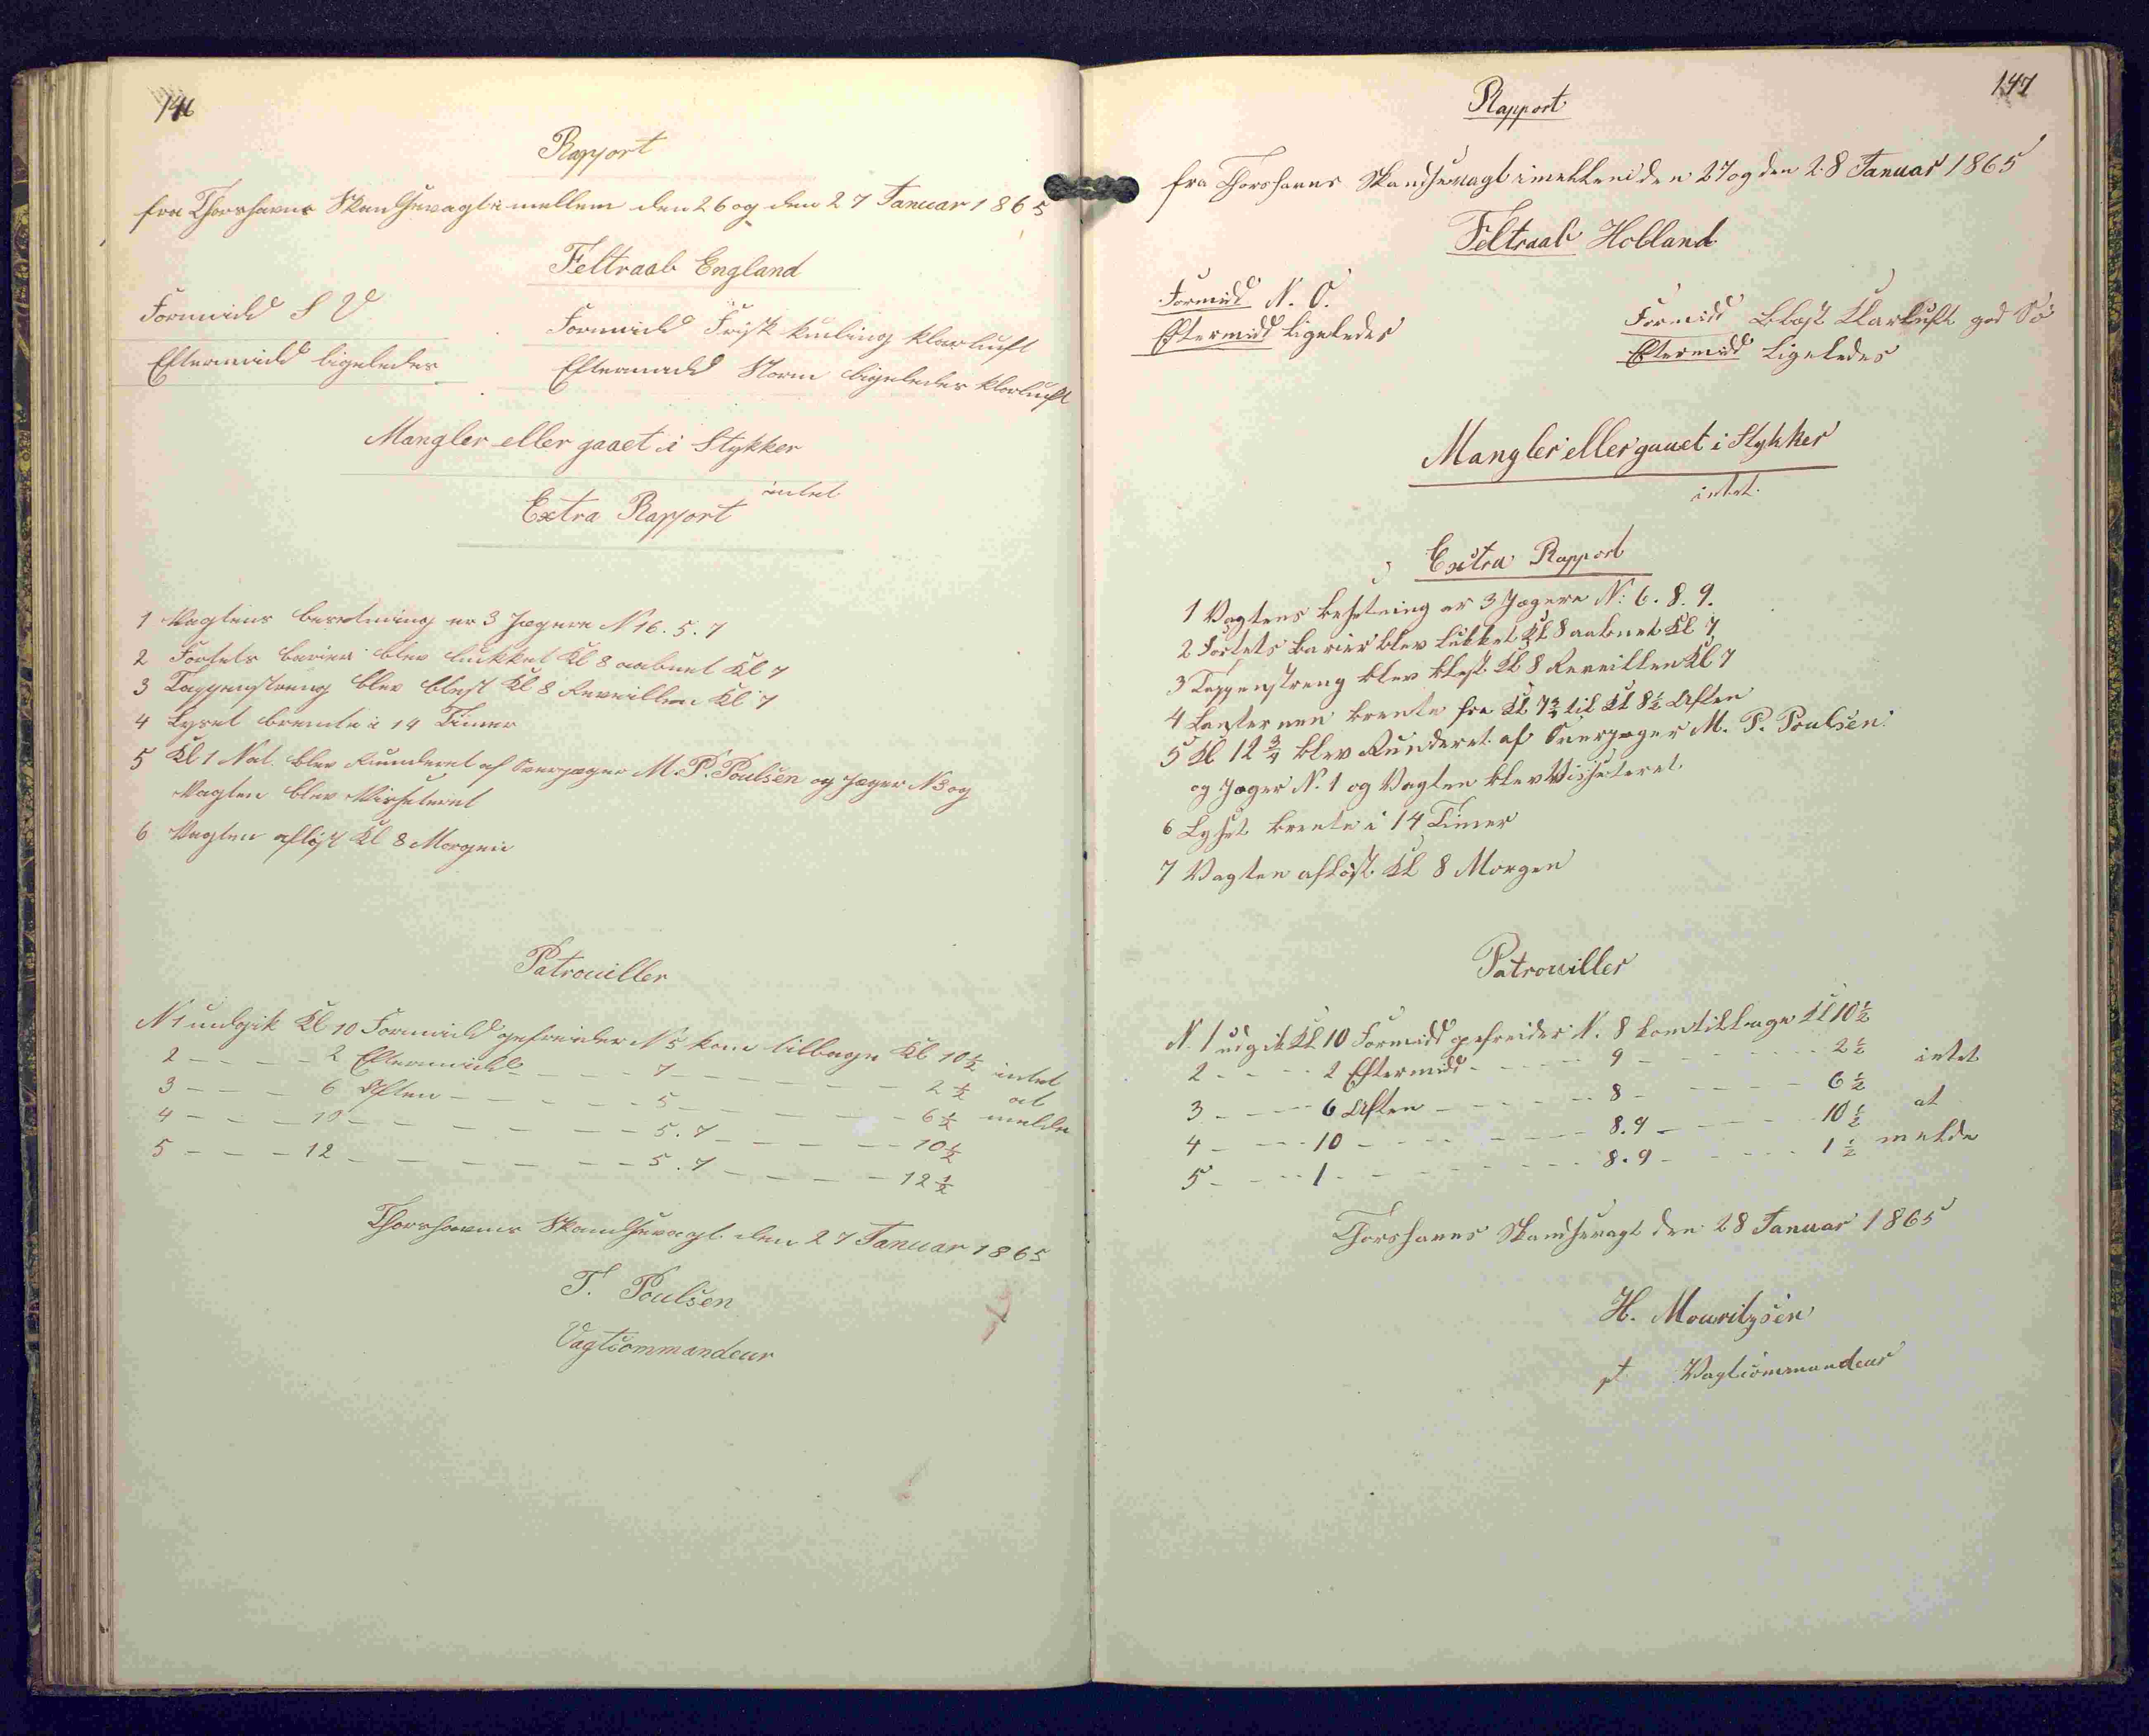 146
Rapport
fra Thorshavns Skandsevagt imellem den 26 og den 27 Januar 1865
Feltraab England
Formidd S V
Eftermidd ligeledes
Formidd Frisk kuling klarluft
Eftermidd Storm ligeledes klarluft
Mangler eller gaaet i Stykker
intet
Extra Rapport
1 Vagtens besetning er 3 Jægere N 16. 5. 7
2 Fortets barier blev lukket Kl 8 aabnet Kl 7
3 Tappenstreng blev blest Kl 8 Reveillen Kl 7
4 Lyset brente i 14 Timer
5 Kl 1 Nat blev Runderet af Overjæger M. P. Poulsen og Jæger N 3 og
Vagten blev Visiteret
6 Vagten afløst Kl 8 Morgen
Patrouiller
N 1 udgik Kl 10 Formidd gefreider N 5 kom tilbage Kl 10 1/2 intet
2 - - - - 2 Eftermidd - - - - 7 - - - - - - 2 1/2 at
3 - - - 6 Aften - - - - - 5 - - - - - - 6 1/2 melde
4 - - - 10 - - - - - - 5. 7 - - - - - 10 1/2
5 - - - 12 - - - - - - 5. 7 - - - - - 12 1/2
Thorshavns Skandsevagt den 27 Januar 1865
T. Poulsen
Vagtcommandeur
147
Rapport
fra Thorshavns Skandsevagt imellem den 27 og den 28 Januar 1865
Feltraab Holland
Formidd N. O.
Eftermidd Ligeledes
Formidd Blæst Klarluft god Sö
Eftermidd Ligeledes
Mangler eller gaaet i Stykker
intet.
Extra Rapport
1 Vagtens besetning er 3 Jægere N: 6. 8. 9.
2 Fortets barier blev lukket Kl 8 aabnet Kl 7
3 Tappenstreng blev blest Kl 8 Reveillen Kl 7
4 Lanternen brente fra Kl 7 3/4 til Kl 8 1/2 Aften
5 Kl 12 3/4 blev Runderet af Overjæger M. P. Poulsen
og Jæger N. 1 og Vagten blev Visiteret.
6 Lyset brente i 14 Timer
7 Vagten afløst Kl 8 Morgen
Patrouiller
N. 1 udgik Kl 10 Formidd gefreider N. 8 kom tilbage Kl 10 1/2
2 - - - - 2 Eftermidd - - - - 9 - - - - - - 2 1/2 intet
3 - - - - 6 Aften - - - - - 8 - - - - - 6 1/2 at
4 - - - - 10 - - - - - - - 8. 9 - - - - - 10 1/2 melde
5 - - - - 1 - - - - - - - 8. 9 - - - - - 1 1/2
Thorshavns Skandsevagt den 28 Januar 1865
H. Mouritzsen
pt Vagtcommandeur